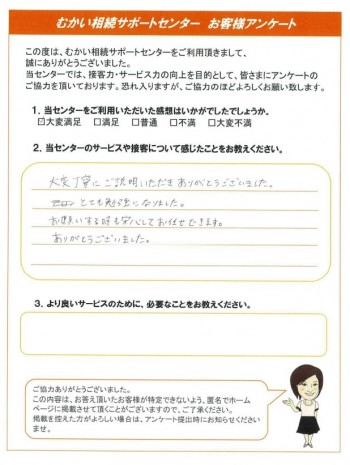 むかい相続サポートセンター　お客様アンケート
この度は、むかい相続サポートセンターをご利用頂きまして、
誠にありがとうございました。
当センターでは、接客力・サービス力の向上を目的として、皆さまにアンケートの
ご協力を頂いております。恐れ入りますが、ご協力のほどよろしくお願い致します。
1．当センターをご利用いただいた感想はいかがでしたでしょうか。
☑大変満足　□満足　□普通　□不満　□大変不満
2．当センターのサービスや接客について感じたことをお教えください。
大変丁寧にご説明いただきありがとうございました。
とても勉強になりました。
お願いする時も安心してお任せできます。
ありがとうございました。
3．より良いサービスのために、必要なことをお教えください。
ご協力ありがとうございました。
この内容は、お答え頂いたお客様が特定できないよう、匿名でホーム
ページに掲載させて頂くことがございますので、ご了承ください。
掲載を控えた方がよろしい場合は、アンケート提出時にお知らせください
ませ。